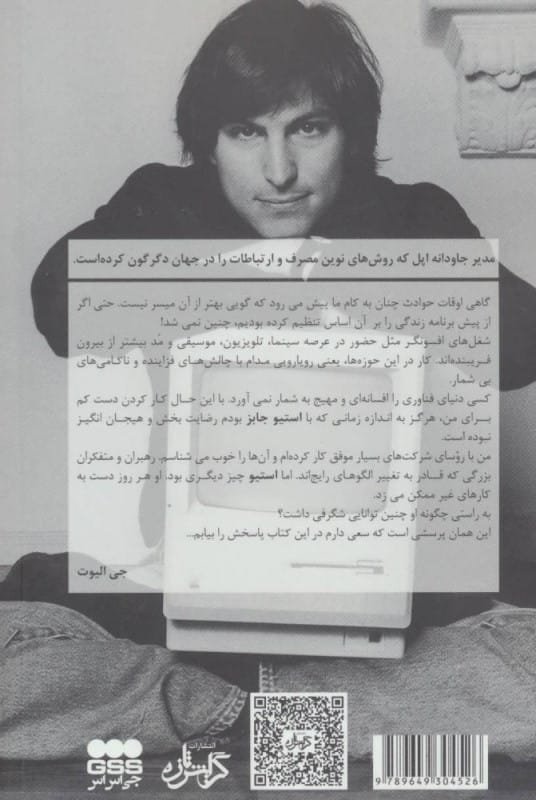 مدیر جاودانه اپل که روش‌های نوین مصرف و ارتباطات را در جهان دگرگون کرده‌است.
گاهی اوقات حوادث چنان به کام ما پیش می رود که گویی بهتر از آن میسر نیست. حتی اگر
از پیش برنامه زندگی را بر آن اساس تنظیم کرده بودیم، چنین نمی شد!
شغل‌های افسونگر مثل حضور در عرصه سینما، تلویزیون، موسیقی و مُد بیشتر از بیرون
فریبنده‌اند. کار در این حوزه‌ها، یعنی رویارویی مدام با چالش‌های فزاینده و ناکامی‌های
بی شمار.
کسی دنیای فناوری را افسانه‌ای و مهیج به شمار نمی آورد. با این حال کار کردن دست کم
برای من، هرگز به اندازه زمانی که با استیو جابز بودم رضایت بخش و هیجان انگیز
نبوده است.
من با رؤسای شرکت‌های بسیار موفق کار کرده‌ام و آن‌ها را خوب می شناسم. رهبران و متفکران
بزرگی که قادر به تغییر الگوهای رایج‌اند. اما استیو چیز دیگری بود، او هر روز دست به
کارهای غیر ممکن می زد.
به راستی چگونه او چنین توانایی شگرفی داشت؟
این همان پرسشی است که سعی دارم در این کتاب پاسخش را بیابم...
جی الیوت
GSS
جی‌اس‌اس
انتشارات
9 789649 304526